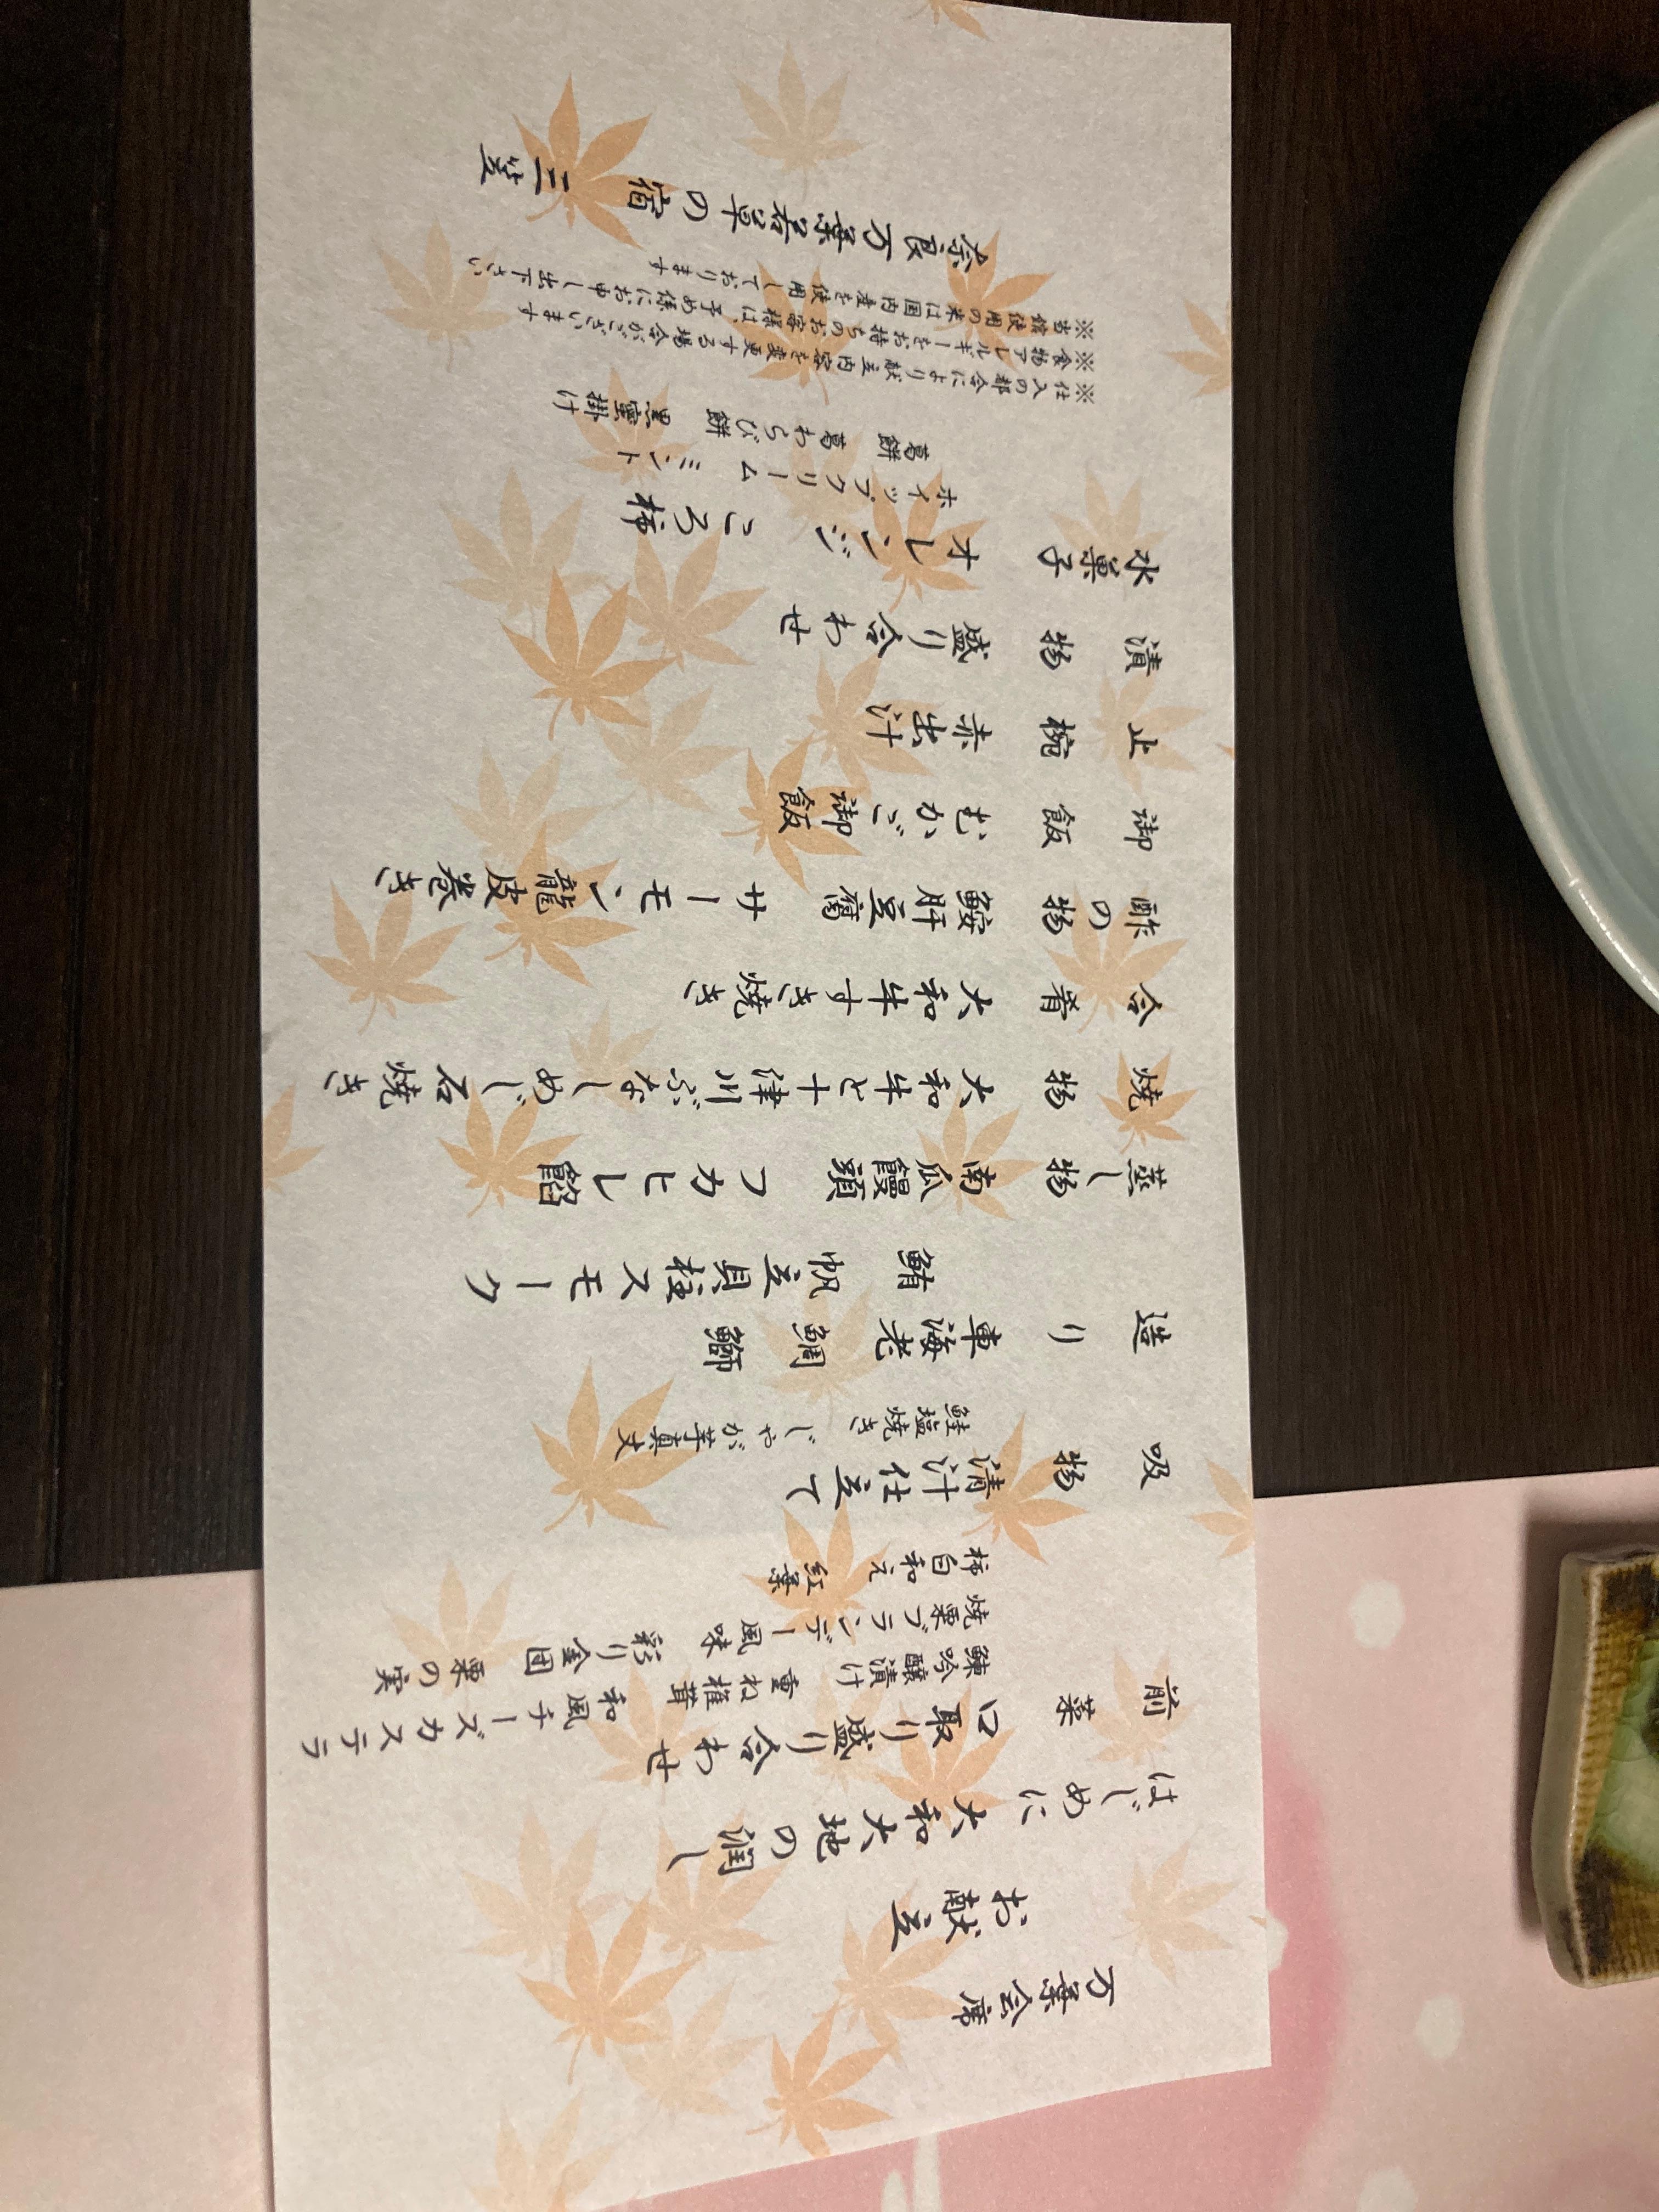 万葉会席
お献立
はじめに 大和大地の潤し
前菜 口取り盛り合わせ
鰊吟醸漬け 重ね椎茸 和風チーズカステラ
焼栗ブランデー風味 彩り金団 栗の実
柿白和え 紅葉
吸物 清汁仕立て
鮭塩焼き じゃが芋真丈
造り 車海老 鯛 鰤
鮪 帆立貝柱スモーク
蒸し物 南瓜饅頭 フカヒレ餡
焼物 大和牛と十津川ぶなしめじ石焼き
合肴 大和牛すき焼き
酢の物 鮟肝豆腐 サーモン龍皮巻き
御飯 むかご御飯
止椀 赤出汁
漬物 盛り合わせ
水菓子 オレンジ ころ柿
ホイップクリーム ミント
葛餅 葛わらび餅 黒蜜掛け
※仕入の都合により献立内容を変更する場合がございます
※食物アレルギーをお持ちのお客様は、予め係にお申し出下さい
※当館使用の米は国内産を使用しております
奈良万葉若草の宿 三笠